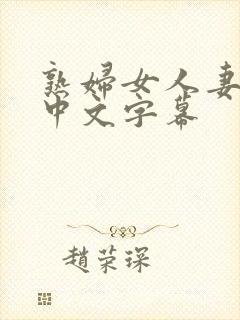 熟婦女人妻
中文字幕
趙荣琛